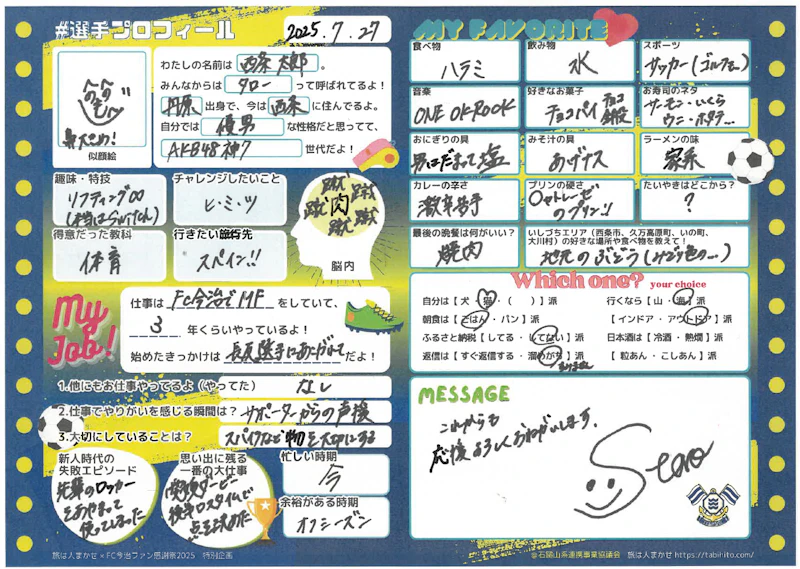 #選手プロフィール
2025.7.27
わたしの名前は 西条 太郎 。
みんなからは タロー って呼ばれてるよ!
丹原 出身で、今は 西条 に住んでるよ。
自分では 優男 な性格だと思ってて、
AKB48 神7 世代だよ!
鼻大きめ!
似顔絵
趣味・特技
リフティング∞
(本当はSwitch)
チャレンジしたいこと
ヒ・ミ・ツ
得意だった教科
体育
行きたい旅行先
スペイン!!
蹴 蹴
蹴 肉 蹴
蹴 蹴
脳内
My Job!
仕事は FC今治でMF をしていて、
3 年くらいやっているよ!
始めたきっかけは 長友選手にあこがれて だよ!
1.他にもお仕事やってるよ(やってた) なし
2.仕事でやりがいを感じる瞬間は? サポーターからの声援
3.大切にしていることは? スパイクなど物を大切にする
新人時代の
失敗エピソード
先輩のロッカー
をあやまって
使ってしまった
思い出に残る
一番の大仕事
後半ロスタイムで
点を決めた
忙しい時期
今
余裕がある時期
オフシーズン
MY FAVORITE
食べ物
ハラミ
飲み物
水
スポーツ
サッカー(ゴルフも…)
音楽
ONE OK ROCK
好きなお菓子
チョコパイ チョコ
お寿司のネタ
サーモン・いくら
ウニ・ホタテ…
おにぎりの具
男はだまって塩
みそ汁の具
あげナス
ラーメンの味
家系
カレーの辛さ
激辛苦手
プリンの硬さ
のプリン!!
たいやきはどこから?
?
最後の晩餐は何がいい?
焼肉
いしづちエリア(西条市、久万高原町、いの町、
大川村)の好きな場所や食べ物を教えて!
地元のぶどう(みどり色の…)
Which one? your choice
自分は【犬・猫・( )】派
行くなら【山・海】派
朝食は【ごはん・パン】派
【インドア・アウトドア】派
ふるさと納税【してる・してない】派
日本酒は【冷酒・熱燗】派
返信は【すぐ返信する・溜めがち】派
【粒あん・こしあん】派
MESSAGE
これからも
応援よろしくおねがいします。
旅は人まかせ × FC今治ファン感謝祭2025 特別企画
@石鎚山系連携事業協議会 旅は人まかせ https://tabihito.com/